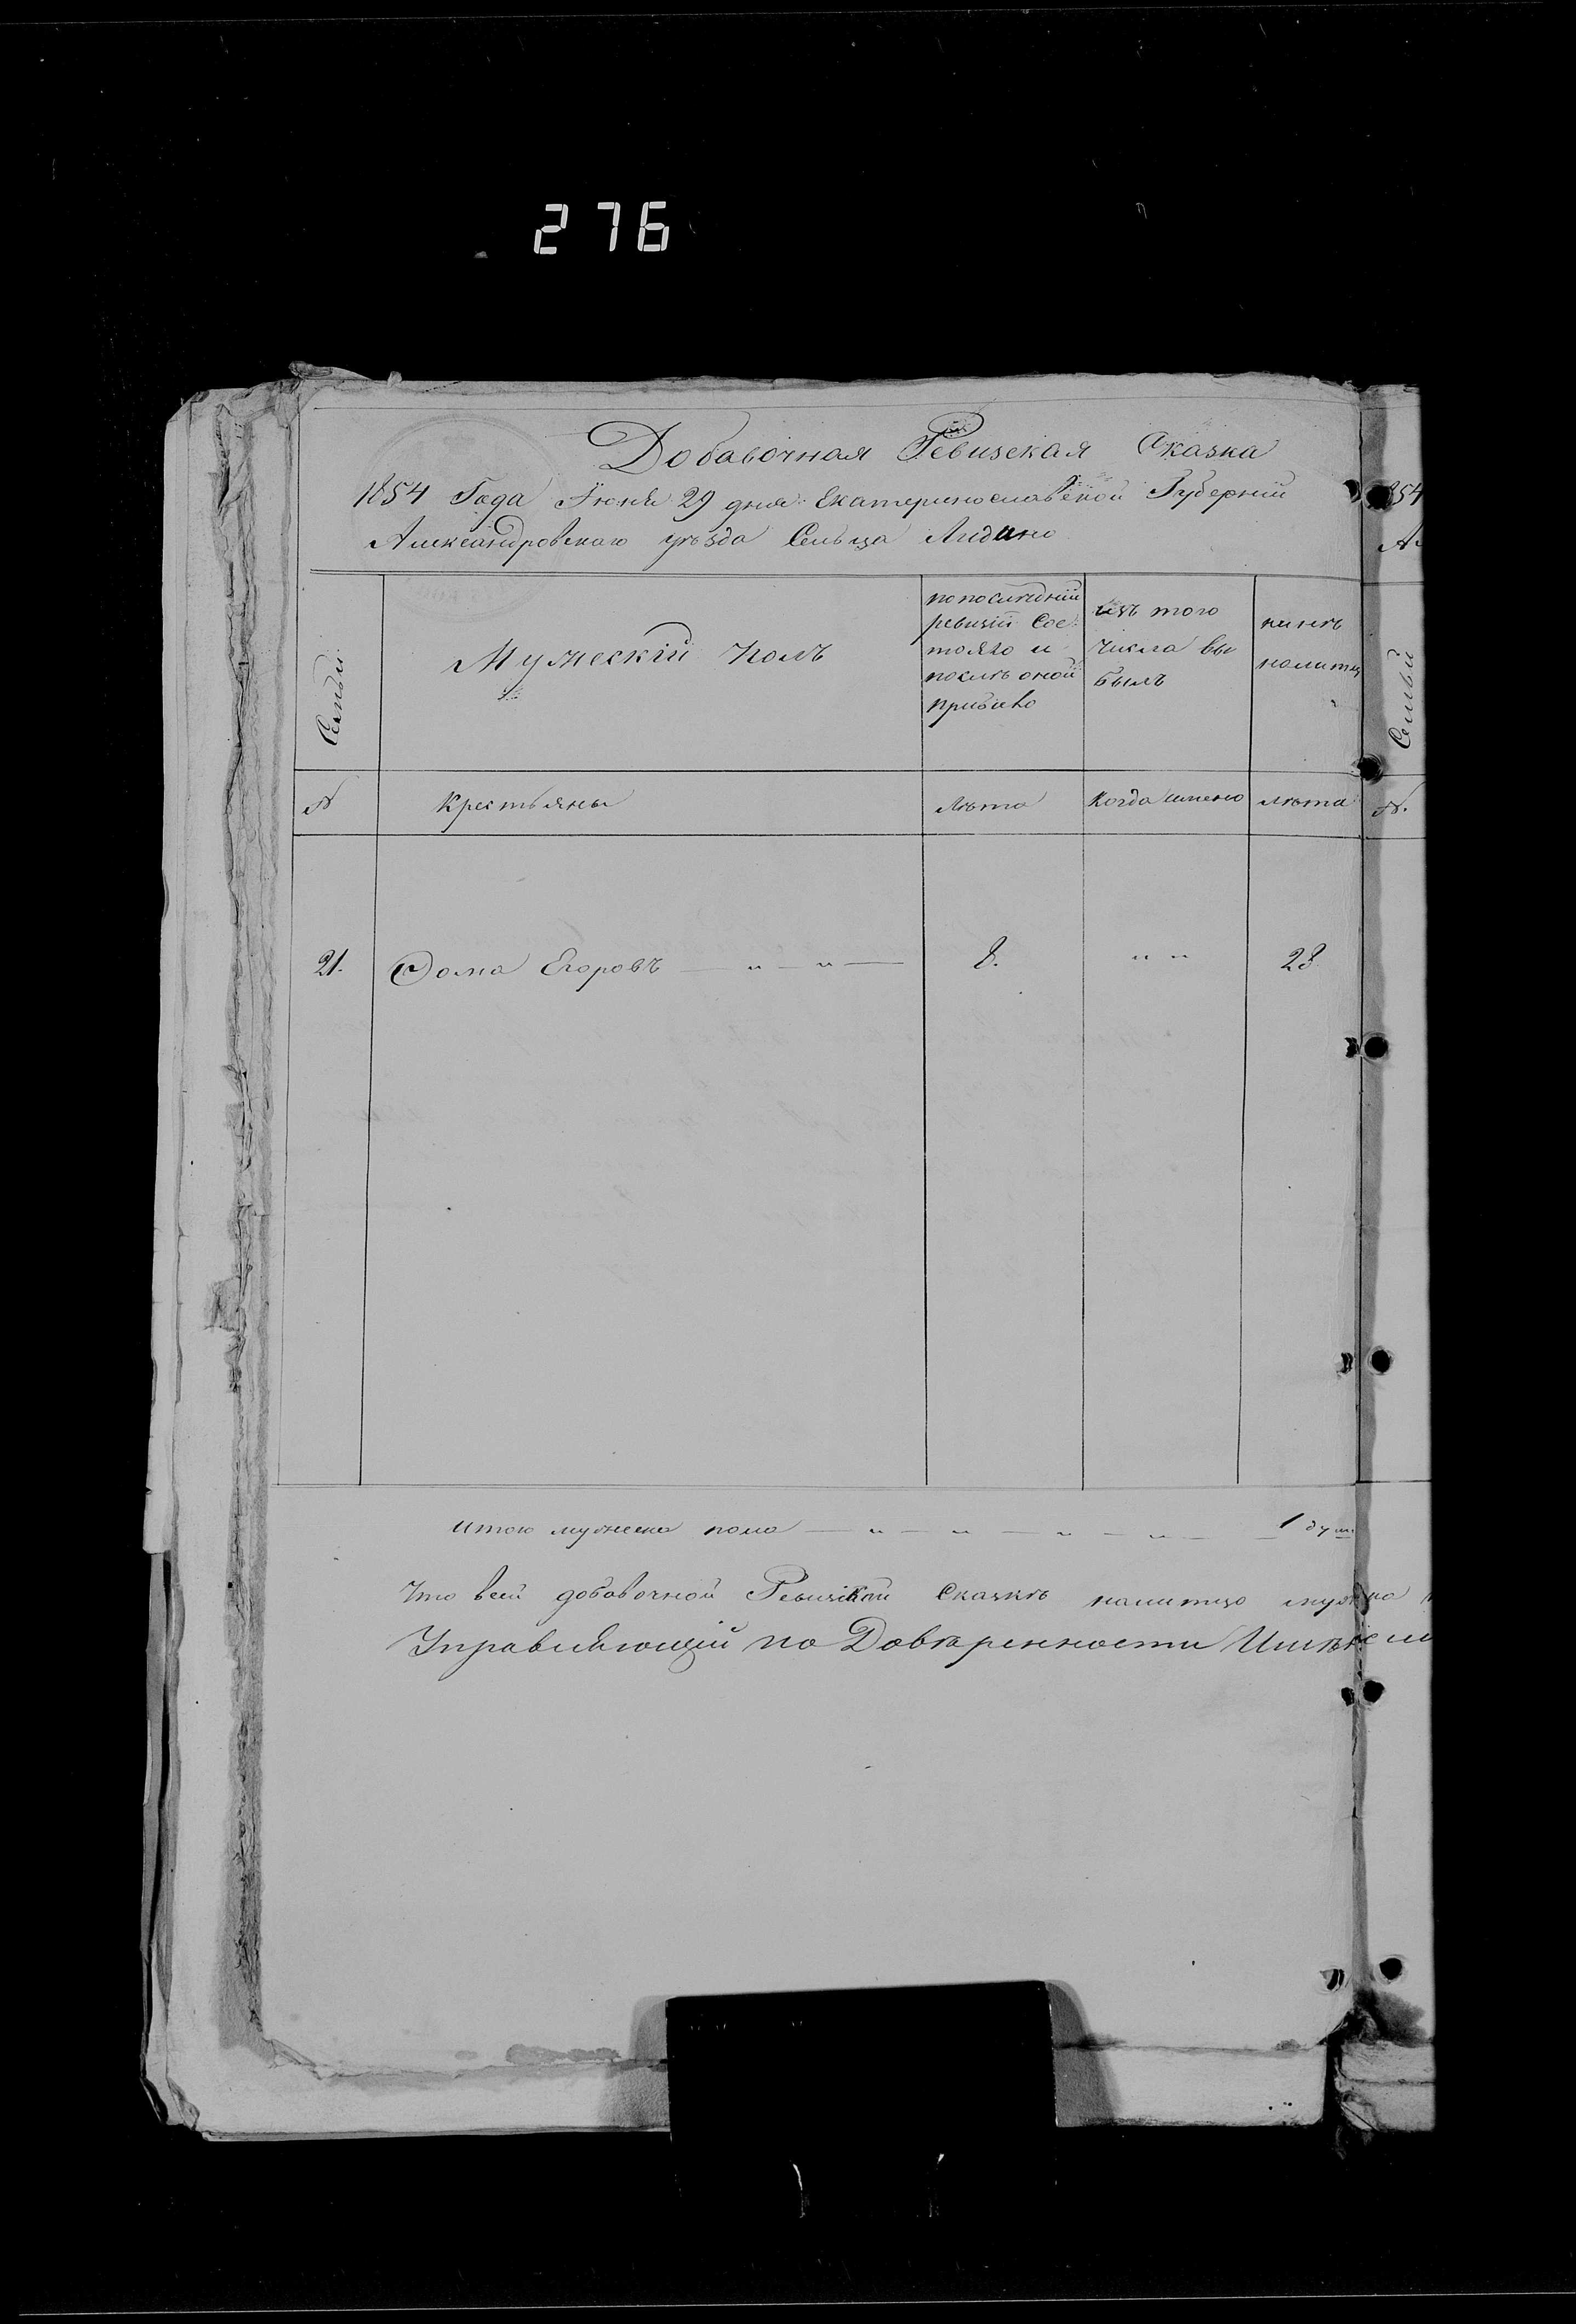 276
Добавочная Ревизская Сказка
1854 Года Июня 29 дня Екатеринославской Губернии
Александровскаго уѣзда Сельца Лидино
Семьи
Мужескій полъ
попоследній
ревизіи Сос
тояло и
послѣ оной
прибыло
изъ того
числа вы
былъ
нынѣ
налитцо
Семьи
№
Крестьяны
Лѣта
Когда имено
лѣта
№.
21.
Ѳома Егоровъ
8.
" "
28
итого мужеска пола — " — " — " — " — 1 душ
Что всей добавочной Ревизкой Сказкѣ налитцо
Управляющій по Довѣренности
854